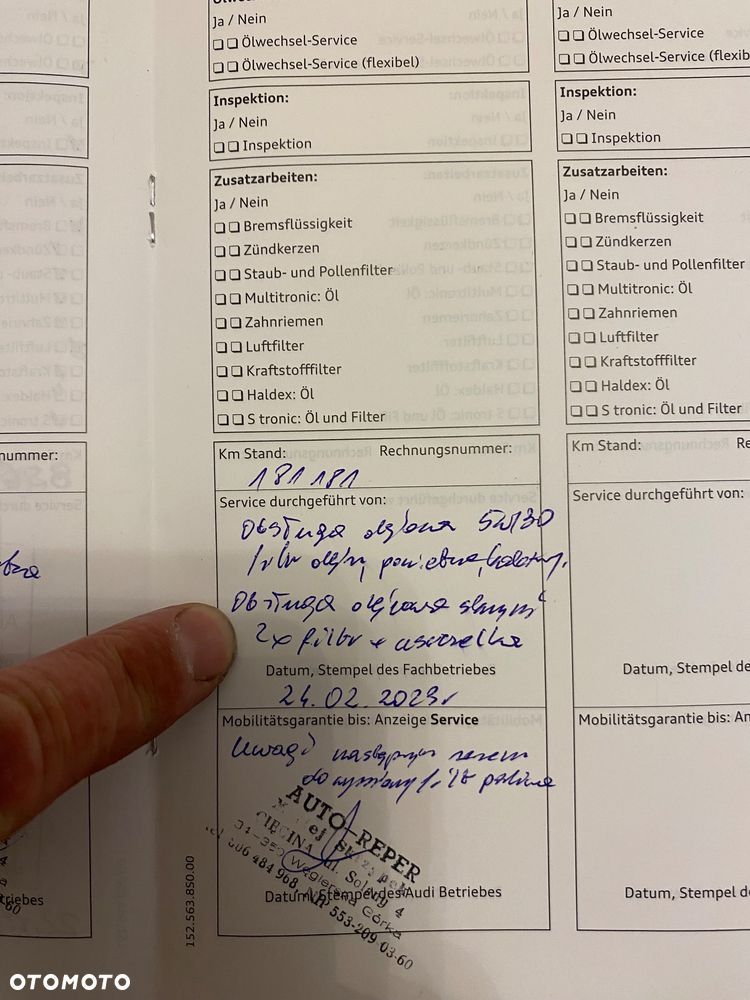 Ja / Nein
Ölwechsel-Service
Ölwechsel-Service (flexibel)
Inspektion:
Ja / Nein
Inspektion
Zusatzarbeiten:
Ja / Nein
Bremsflüssigkeit
Zündkerzen
Staub- und Pollenfilter
Multitronic: Öl
Zahnriemen
Luftfilter
Kraftstofffilter
Haldex: Öl
S tronic: Öl und Filter
Km Stand: Rechnungsnummer:
181 181
Service durchgeführt von:
Obsługa olejowa 5W30
filtr oleju, powietrza,
Obsługa olejowa skrzyni
2x filtr + uszczelka
Datum, Stempel des Fachbetriebes
Mobilitätsgarantie bis: Anzeige Service
Uwagi następnym razem
do wymiany filtr paliwa
AUTO-REPER
CIĘCINA, ul. Solny 4
34-350 Węgierska Górka
606 484 968, NIP 553-209 03-60
Datum, Stempel des Audi Betriebes
152.563.850.00
Ja / Nein
Ölwechsel-Service
Ölwechsel-Service (flexib
Inspektion:
Ja / Nein
Inspektion
Zusatzarbeiten:
Ja / Nein
Bremsflüssigkeit
Zündkerzen
Staub- und Pollenfilter
Multitronic: Öl
Zahnriemen
Luftfilter
Kraftstofffilter
Haldex: Öl
S tronic: Öl und Filter
Km Stand: Re
Service durchgeführt von:
Datum, Stempel de
Mobilitätsgarantie bis: An
Datum, Stempel des
nummer:
triebes
OTOMOTO